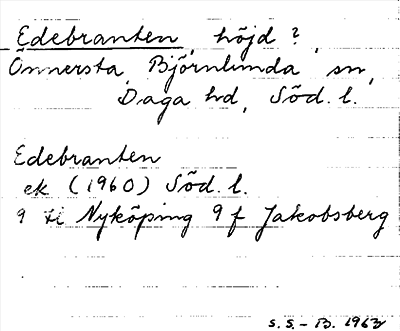 Edebranten, höjd?,
Önnersta, Björnlunda sn,
Daga hd, Söd. l.
Edebranten
ek (1960) Söd. l.
9 ti Nyköping 9 f Jakobsberg
S. S. - B. 1962